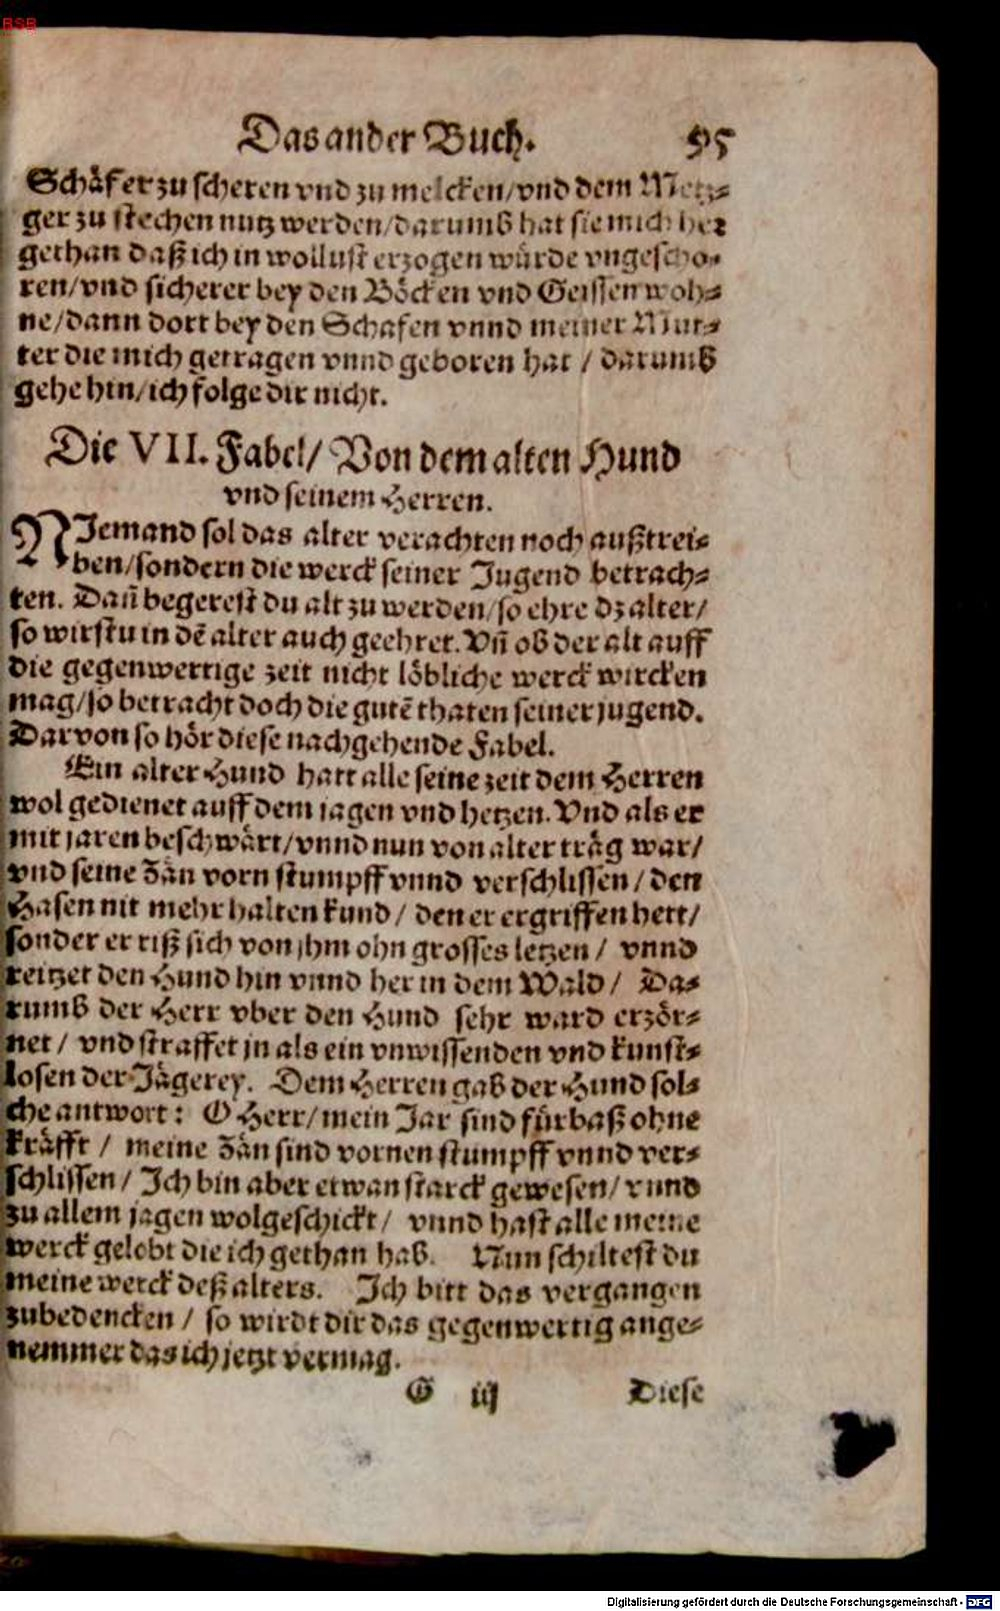 BSB
Das ander Buch. 95
Schäfer zu scheren vnd zu melcken/vnd dem Metz⸗
ger zu stechen nutz werden/darumb hat sie mich her
gethan daß ich in wollust erzogen würde vngescho⸗
ren/vnd sicherer bey den Böcken vnd Geissen woh⸗
ne/dann dort bey den Schafen vnnd meiner Mut⸗
ter die mich getragen vnnd geboren hat / darumb
gehe hin/ich folge dir nicht.
Die VII. Fabel/ Von dem alten Hund
vnd seinem Herren.
NIemand sol das alter verachten noch außtrei⸗
ben/sondern die werck seiner Jugend betrach⸗
ten. Dañ begerest du alt zu werden/so ehre dz alter/
so wirstu in dẽ alter auch geehret. Vñ ob der alt auff
die gegenwertige zeit nicht löbliche werck wircken
mag/so betracht doch die gutẽ thaten seiner jugend.
Darvon so hör diese nachgehende Fabel.
Ein alter Hund hatt alle seine zeit dem Herren
wol gedienet auff dem jagen vnd hetzen. Vnd als er
mit jaren beschwärt/vnnd nun von alter träg war/
vnd seine Zän vorn stumpff vnnd verschlissen / den
Hasen nit mehr halten kund / den er ergriffen hett/
sonder er riß sich von jhm ohn grosses letzen / vnnd
reitzet den Hund hin vnnd her in dem Wald / Da⸗
rumb der Herr vber den Hund sehr ward erzör⸗
net / vnd straffet jn als ein vnwissenden vnd kunst⸗
losen der Jägerey. Dem Herren gab der Hund sol⸗
che antwort: O Herr/mein Jar sind fürbaß ohne
kräfft / meine Zän sind vornen stumpff vnnd ver⸗
schlissen / Ich bin aber etwan starck gewesen/ vnnd
zu allem jagen wolgeschickt / vnnd hast alle meine
werck gelobt die ich gethan hab. Nun schiltest du
meine werck deß alters. Ich bitt das vergangen
zubedencken / so wirdt dir das gegenwertig ange⸗
nemmer das ich jetzt vermag.
G iij Diese
Digitalisierung gefördert durch die Deutsche Forschungsgemeinschaft - DFG